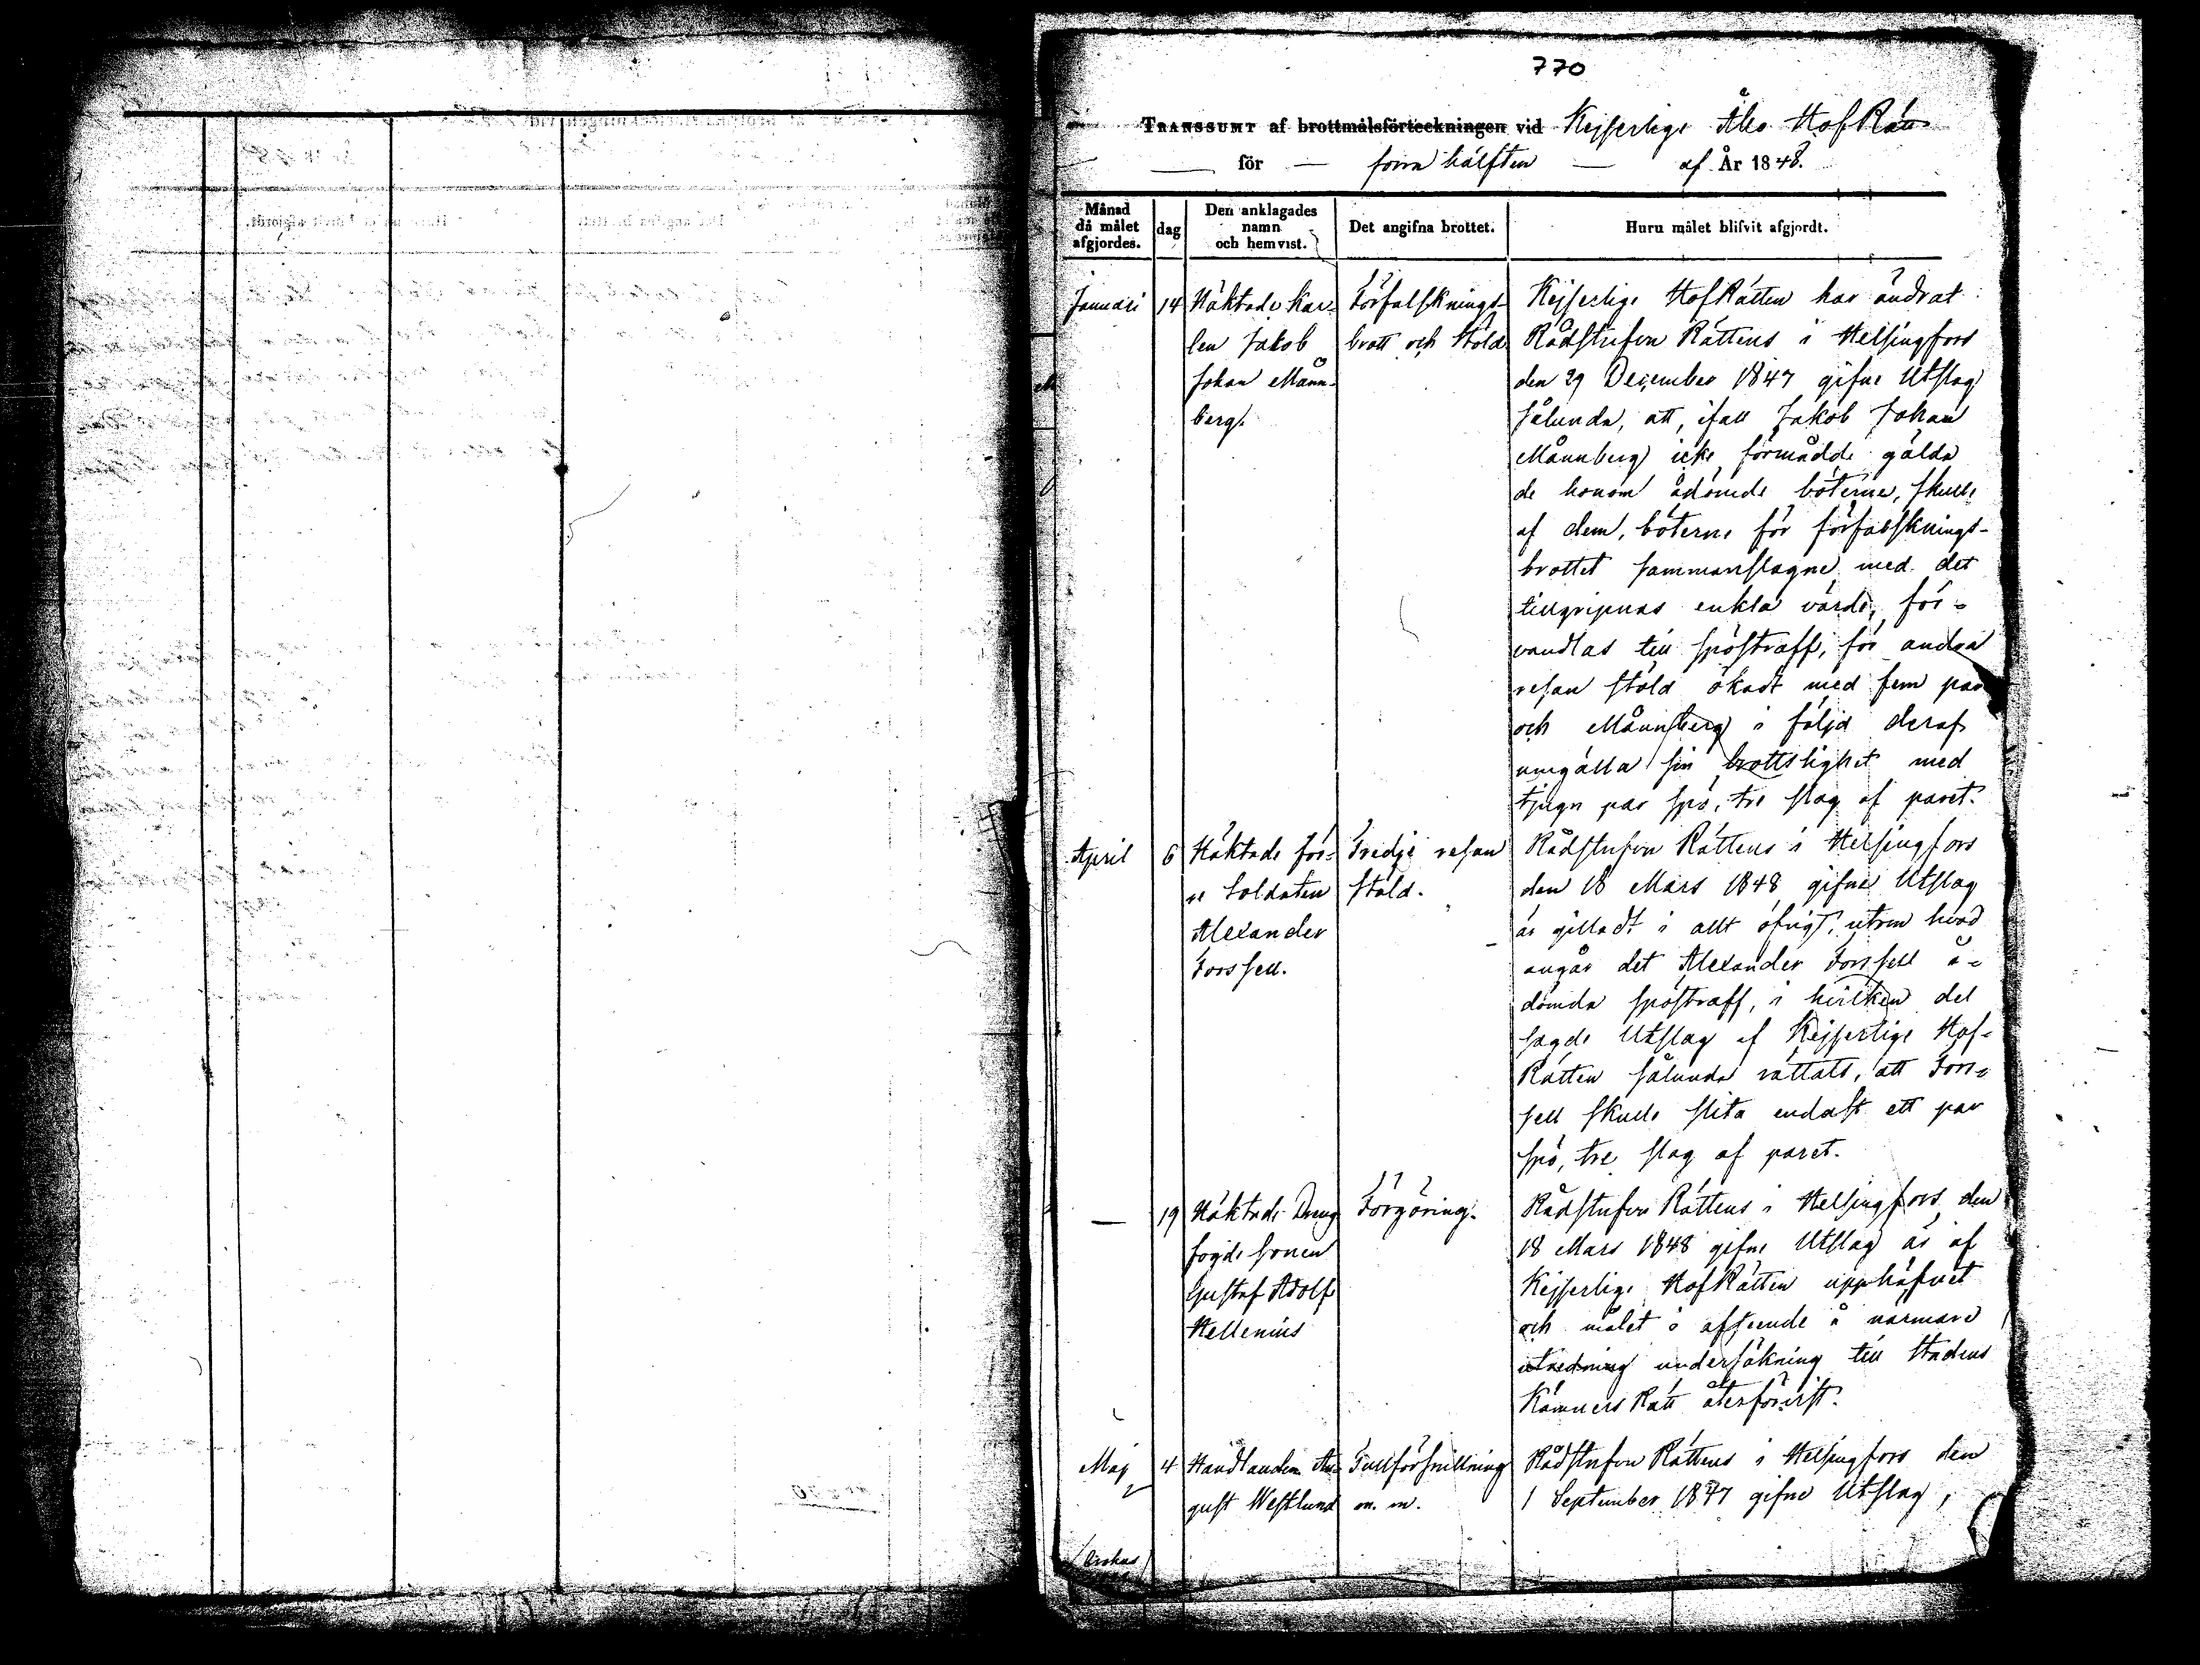 770
TRANSSUMT af brottmålsförteckningen vid Kejserlige Åbo HofRätt
för förra hälften af År 1848.
Månad då målet afgjordes.
dag
Den anklagades namn och hemvist.
Det angifna brottet.
Huru målet blifvit afgjordt.
Januari
14
Häktade Kar-
len Jakob
Johan Månn-
berg.
Förfalsknings-
brott och Stöld
Kejserlige HofRätten har ändrat
RådstufvuRättens i Helsingfors
den 29 December 1847 gifne Utslag
sålunda, att, ifall Jakob Johan
Månnberg icke förmådde gälda
de honom ådömde böterne, skulle
af dem, böterne för förfalsknings-
brottet sammanslagne med det
tillgripnas enkla värde, för-
vandlas till spöstraff, för andra
resan stöld ökadt med fem par
och Månnberg i följd deraf
umgälla sin brottslighet med
tjugu par spö, tre slag af paret.
April
6
Häktade för-
re Soldaten
Alexander
Forssell.
Tredje resan
stöld.
RådstufvuRättens i Helsingfors
den 18 Mars 1848 gifne Utslag
är gilladt i allt öfrigt, utom hvad
angår det Alexander Forssell å-
dömda spöstraff, i hvilken del
sagde Utslag af Kejserlige Hof-
Rätten sålunda rättats, att Fors-
sell skulle slita endast ett par
spö, tre slag af paret.
—
19
Häktade Dreng
fogdesonen
Gustaf Adolf
Hellenius
Förgöring.
RådstufvuRättens i Helsingfors den
18 Mars 1848 gifne Utslag är af
Kejserlige HofRätten upphäfvet
och målet i afseende å närmare
utredning undersökning till Stadens
KämnersRätt återförvist.
Maj
4
Handlanden Au-
gust Westlund
Tullförsnillning
m. m.
RådstufvuRättens i Helsingfors den
1 September 1847 gifne Utslag,